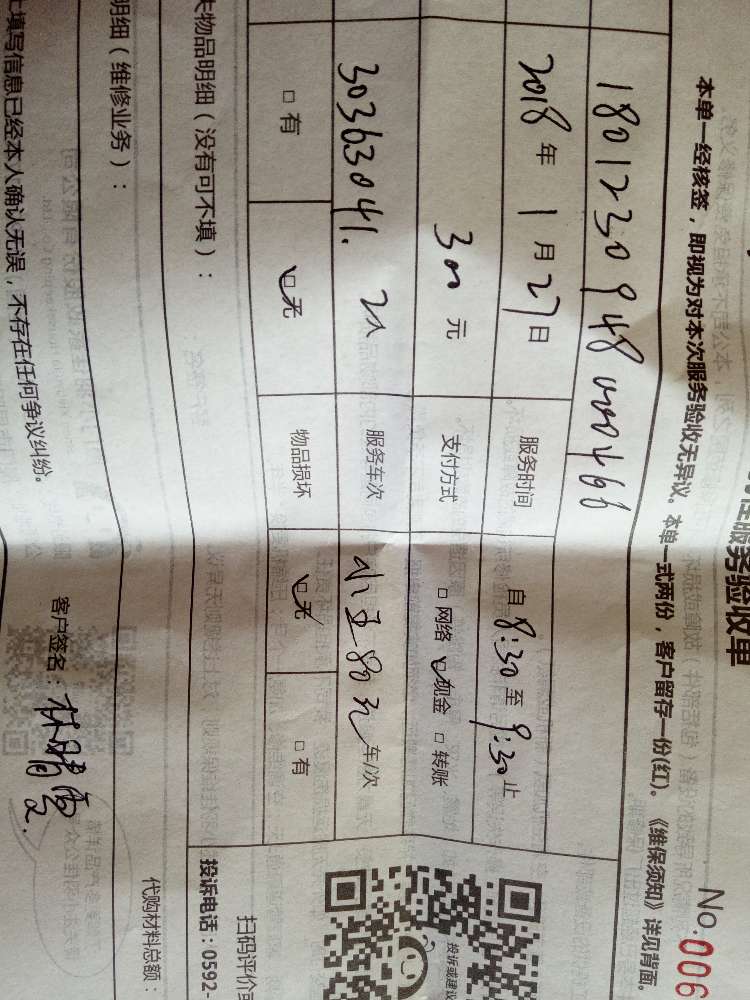 性服务验收单
No.006
本单一经核签，即视为对本次服务验收无异议。本单一式两份，客户留存一份(红)。《维保须知》详见背面。
2018年1月27日 服务时间 自8:30至9:30止
300元 支付方式 □网络 ☑现金 □转账
30363041. 2人 服务车次 小王80元 车/次
□有 ☑无 物品损坏 ☑无 □有
失物品明细（没有可不填）：
投诉电话：0592-
扫码评价
投诉或建议
明细（维修业务）：
代购材料总额：
上填写信息已经本人确认无误，不存在任何争议纠纷。
客户签名：